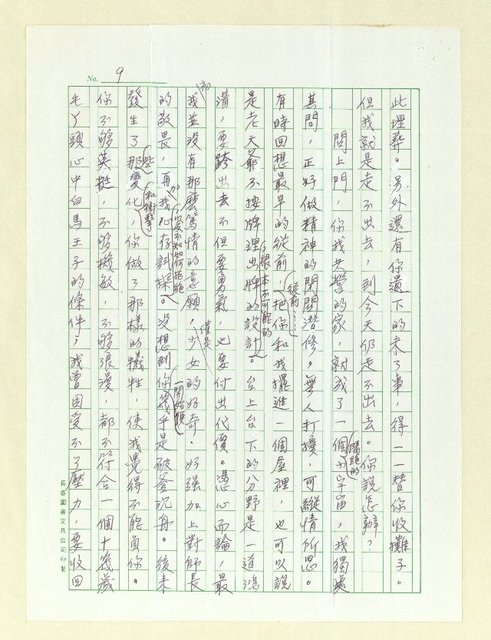 No. 9
此埋葬。另外還有你遺下的未了事，得一一替你收攤子。
但我就是走不出去，到今天仍走不出去。你說怎辦？
關上門，你我共營的家，就成了一個隔絕的小宇宙，我獨處
其間，正好做精神的閉關潛修。無人打擾，可縱情所思。
有時回想最早的從前，從前，把你和我擺進一個屋裡，也可以說
是老天爺不按牌理出牌的設計。根本不可能的台上台下的分野是一道鴻
溝，要跨出去不但要勇氣，也要付出代價。憑心而論，最
初我並沒有那麼篤情的意願，僅是少女的好奇，好強加上對師長
的敬畏，再加我心存刺探。以及不知如何拒絕沒想到你一開始便幾乎是破釜沉舟。後來
發生了那些變化和衝擊，你做了那樣的犧牲，使我覺得不能負你。
你不夠英挺，不夠機敏，不夠浪漫，都不符合一個十幾歲
毛丫頭心中白馬王子的條件，我曾因受不了壓力，要收回
長春圖書文具公司印製